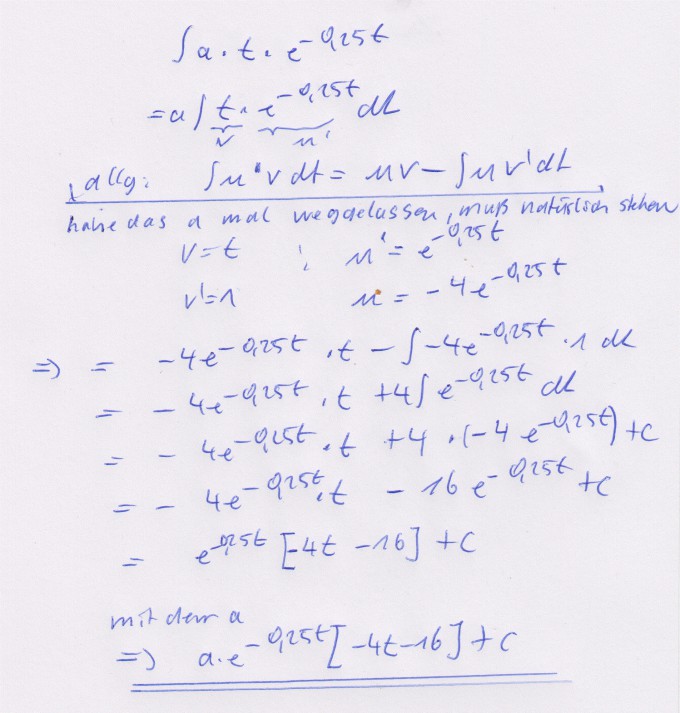 ∫a·t·e^-0,25t
=a∫t·e^-0,25t dt
v u'
allg: ∫u'v dt = uv - ∫uv'dt
habe das a mal weggelassen, muß natürlich stehen
v=t ; u' = e^-0,25t
v'=1 u = -4e^-0,25t
=> = -4e^-0,25t ·t - ∫-4e^-0,25t ·1 dt
= - 4e^-0,25t ·t +4∫e^-0,25t dt
= - 4e^-0,25t ·t +4·(-4e^-0,25t)+c
= - 4e^-0,25t ·t - 16e^-0,25t +c
= e^-0,25t [-4t -16] +c
mit dem a
=> a·e^-0,25t [-4t-16]+c